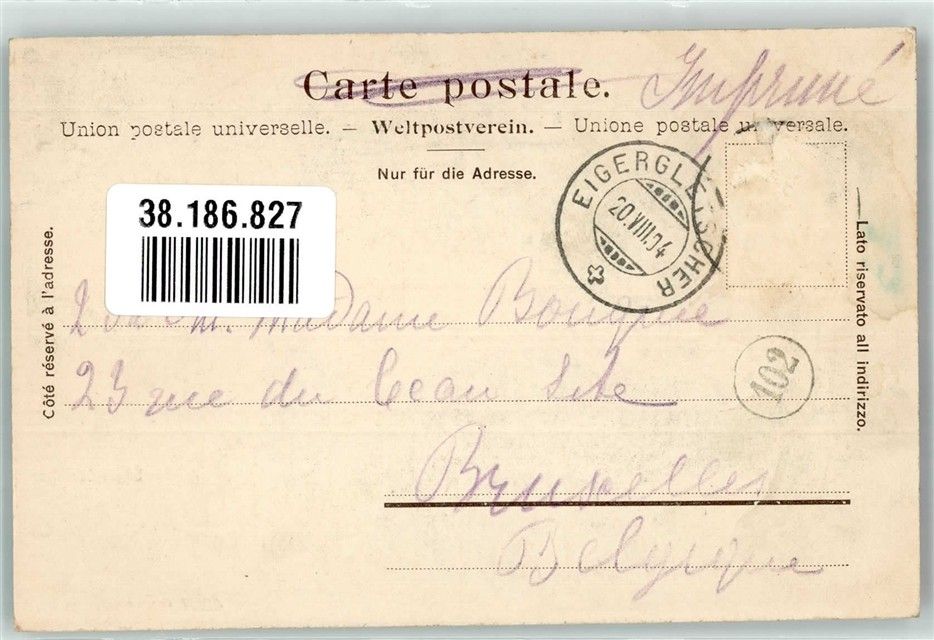 Carte postale.
Imprimé
Union postale universelle. — Weltpostverein. — Unione postale universale.
Nur für die Adresse.
EIGERGLETSCHER
20.VIII.04
38.186.827
Côté réservé à l'adresse.
Lato riservato all indirizzo.
Madame
102
23 rue du Beau Site
Bruxelles
Belgique